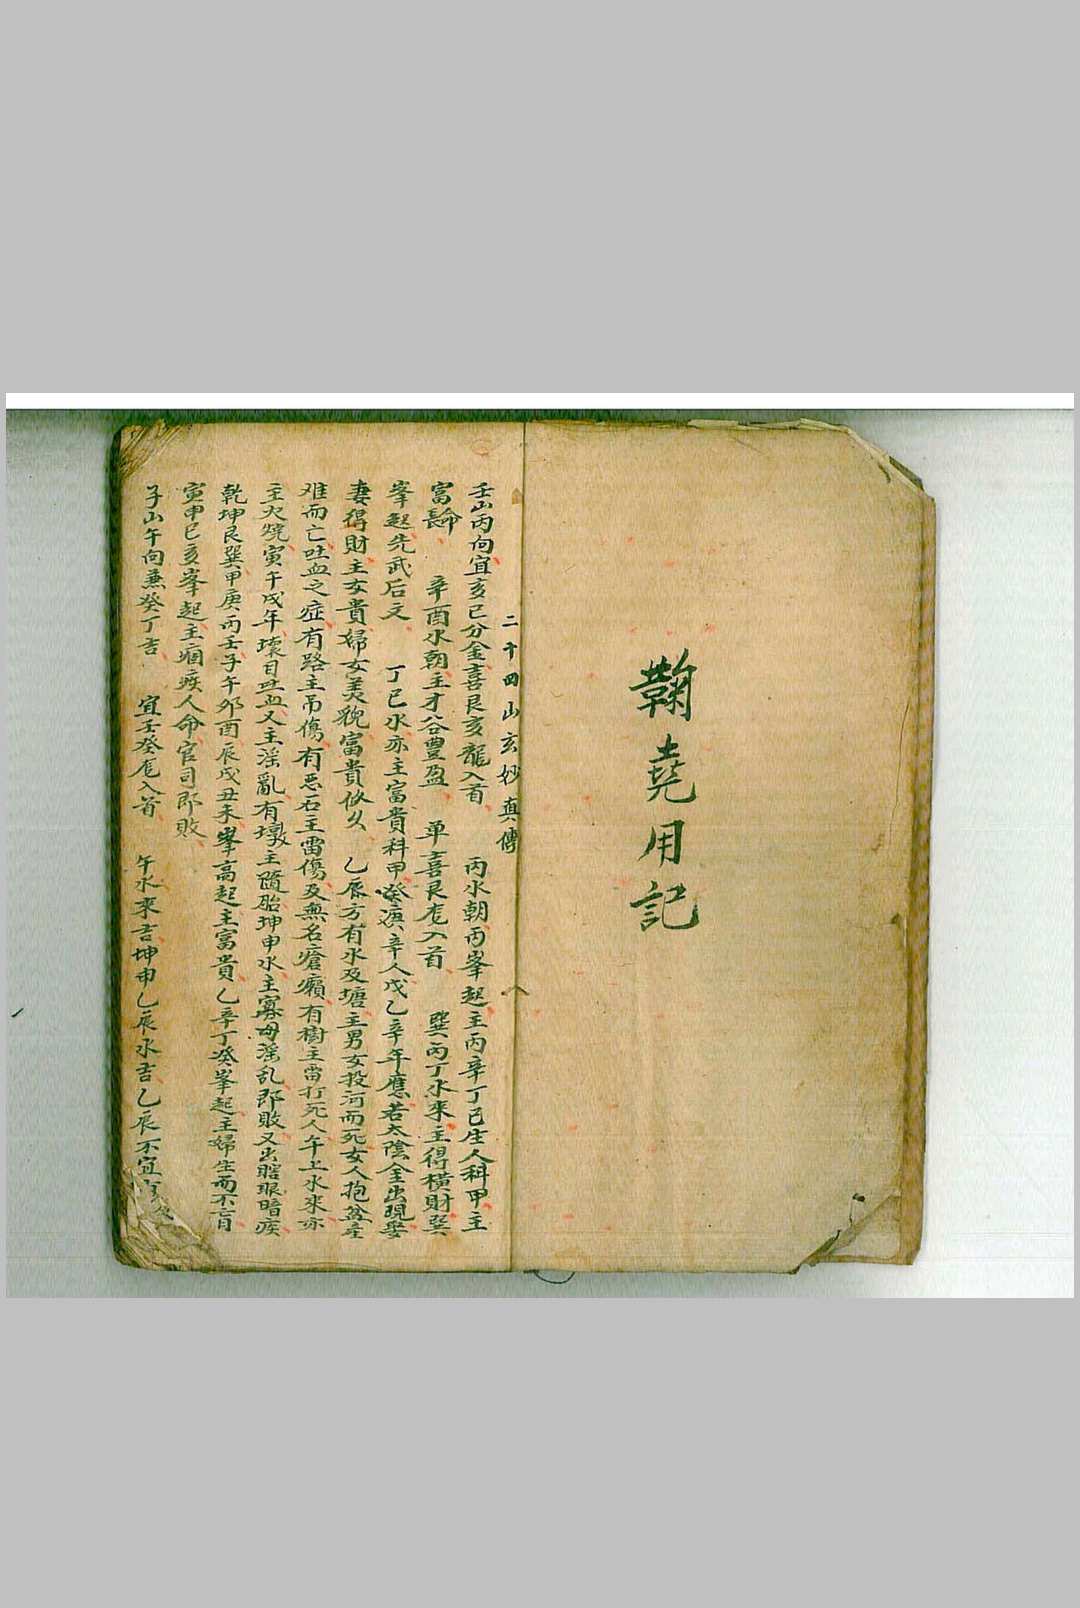 鞠堯用記
二十四山玄妙真傳
壬山丙向宜亥巳分金喜艮亥龍入首 丙水朝丙峯起主丙辛丁巳生人科甲主
富壽 辛酉水朝主才谷豐盈 单喜艮龙入首 巽丙丁水來主得橫財巽
峯起先武后文 丁巳水亦主富貴科甲 辛人戊乙辛年應若太陰金出現娶
妻得財主女貴婦女美貌富貴似久 乙辰方有水及塘主男女投河而死女人抱盆產
难而亡吐血之症有路主吊傷有惡石主雷傷及無名瘡癩有樹主雷打死人午上水來亦
主火燒寅午戌年壞目吐血又主淫亂有墩主隨胎坤申水主寡母淫乱即敗又出瞎眼暗疾
乾坤艮巽甲庚丙壬子午卯酉辰戌丑未峯高起主富貴乙辛丁癸峯起主婦生而不盲
寅申巳亥峯起主痼疾人命官司即敗
子山午向兼癸丁吉 宜壬癸龙入首 午水來吉坤申乙辰水吉乙辰不宜